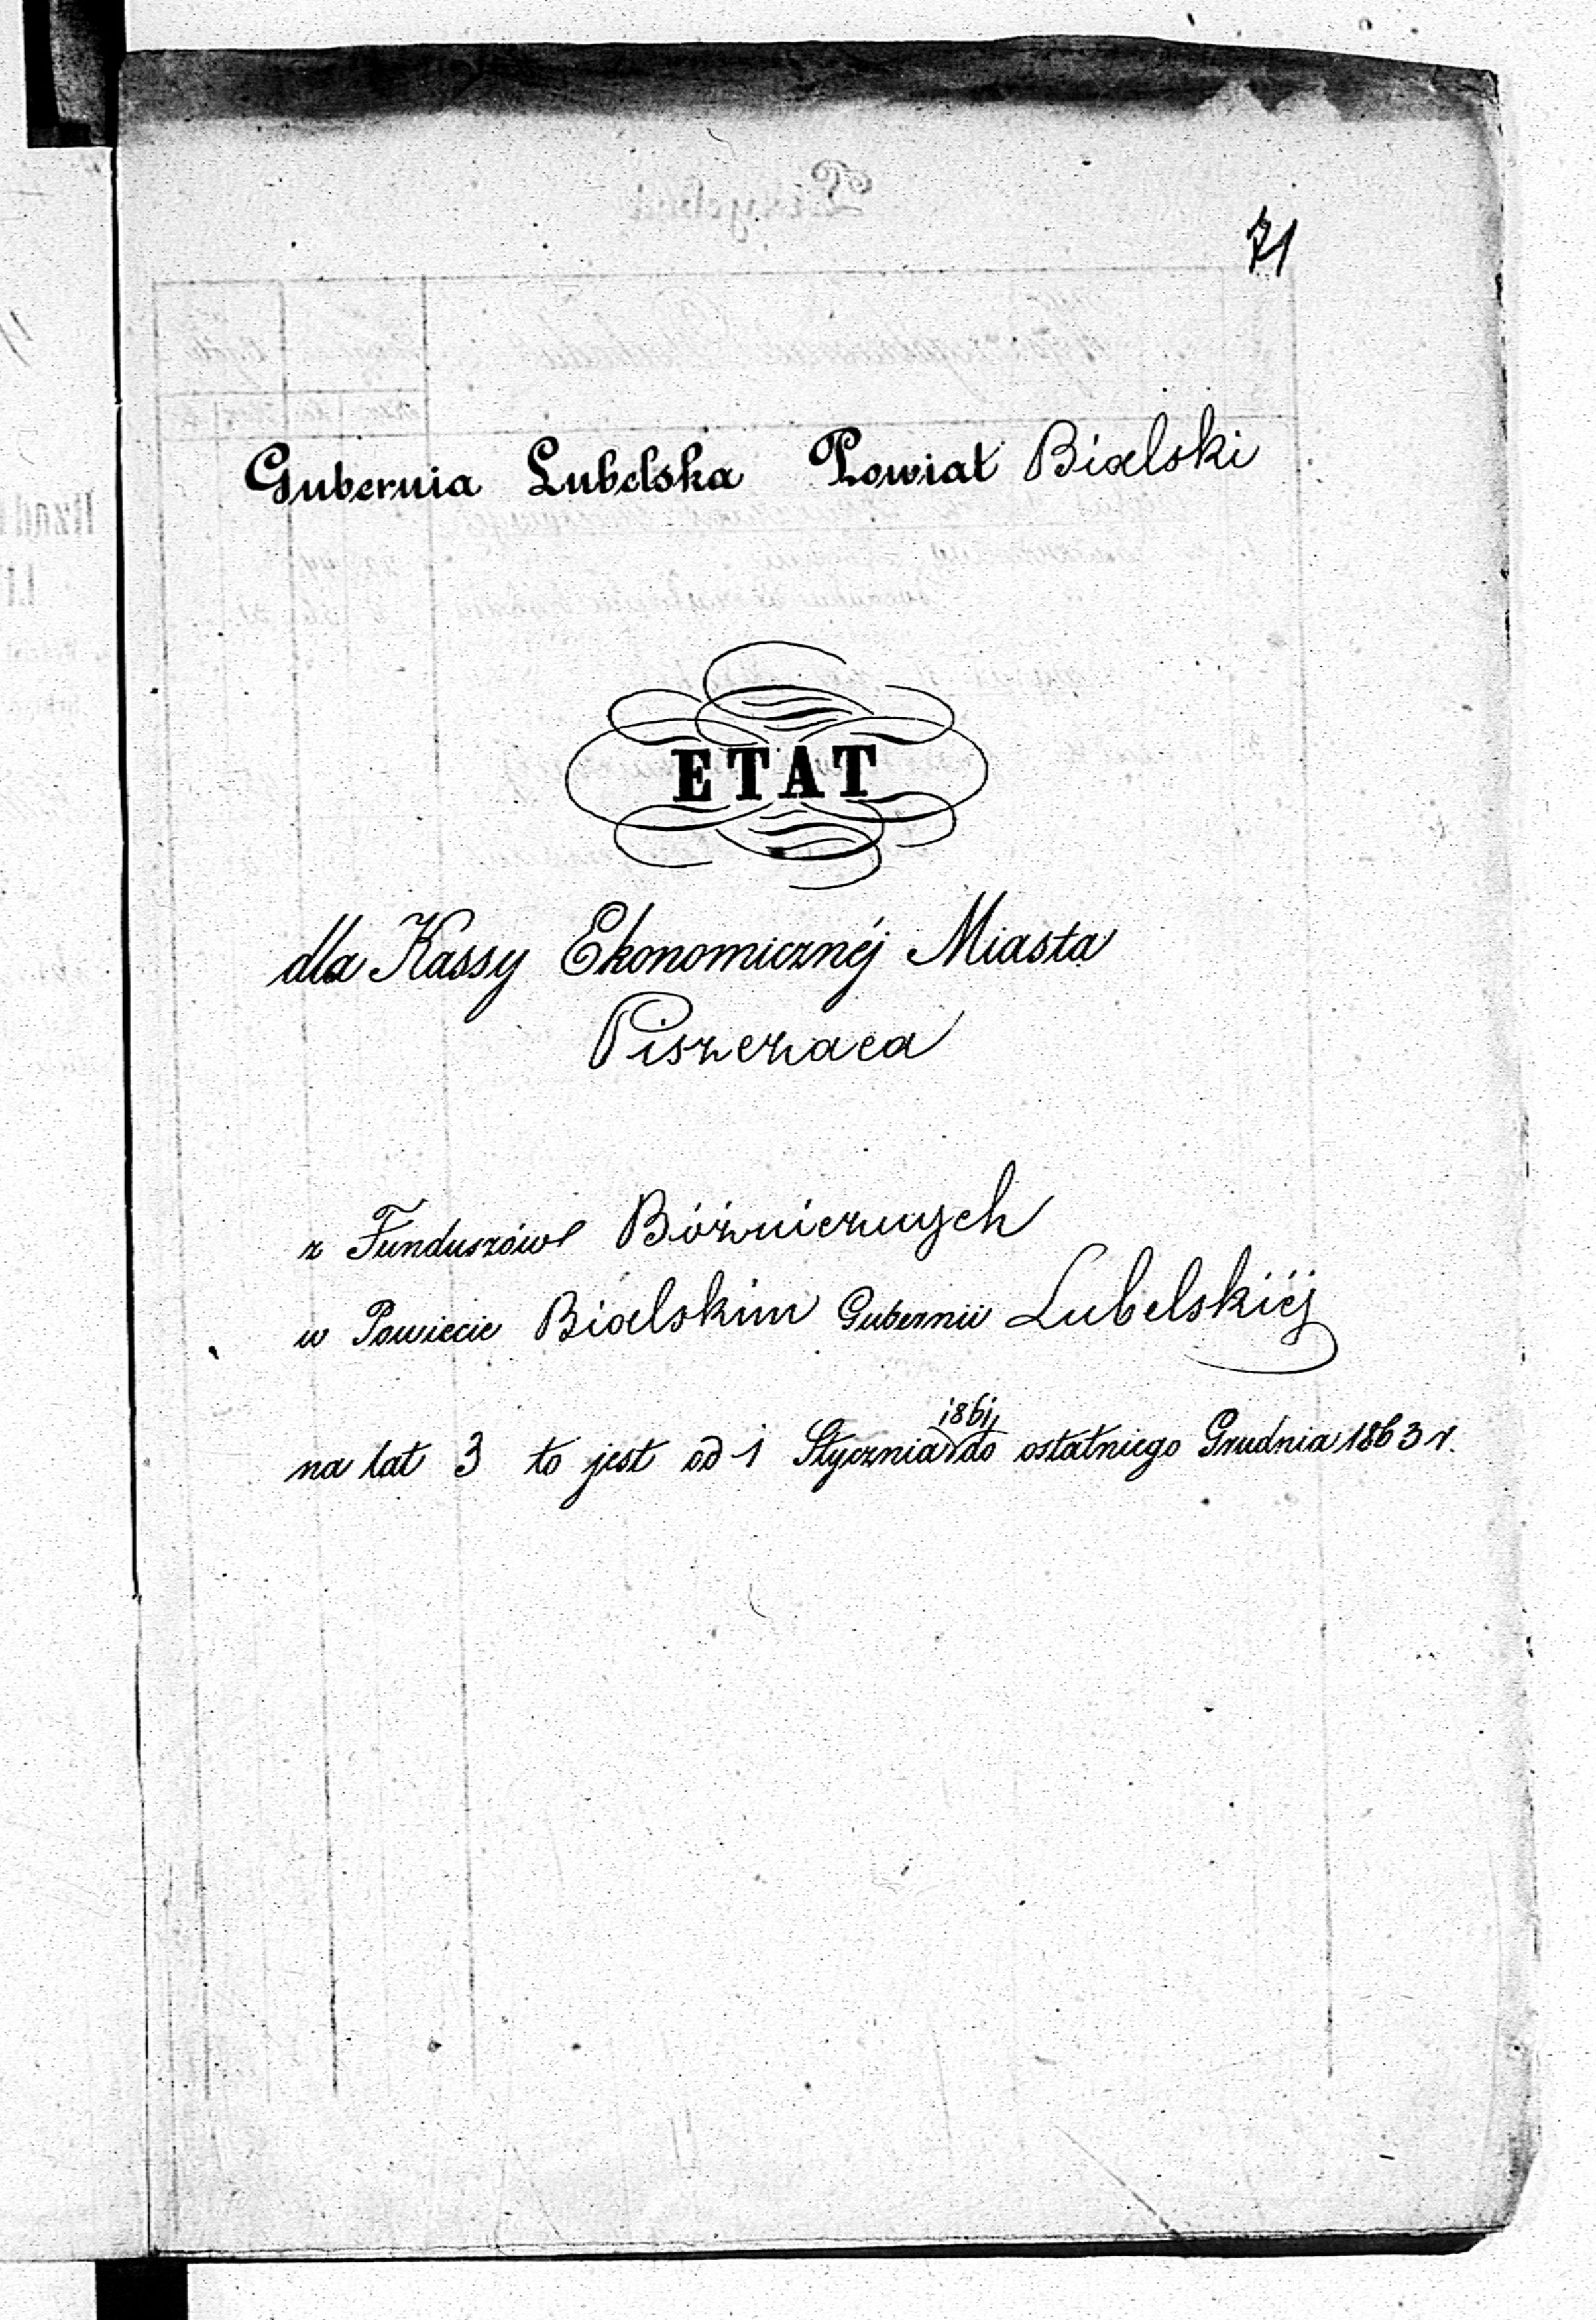 71
Gubernia Lubelska Powiat Bialski
ETAT
dla Kassy Ekonomicznéj Miasta
Piszczaca
z Funduszów Bóżnicznych
w Powiecie Bialskim Gubernii Lubelskiéj
na lat 3 to jest od 1 Stycznia 1861 do ostatniego Grudnia 1863 r.